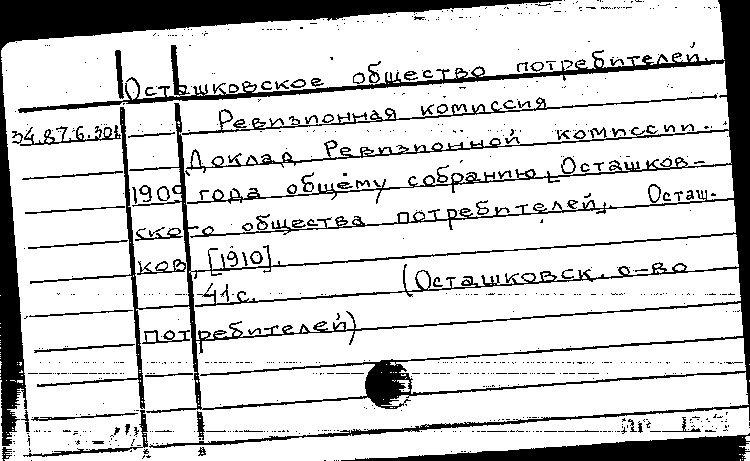 Осташковское общество потребителей.
Ревизионная комиссия
34.87.6.301
Доклад Ревизионной комиссии.
1909 года общему собранию „Осташков-
ского общества потребителей". Осташ-
ков, [1910].
41 с. (Осташковск. о-во
потребителей)